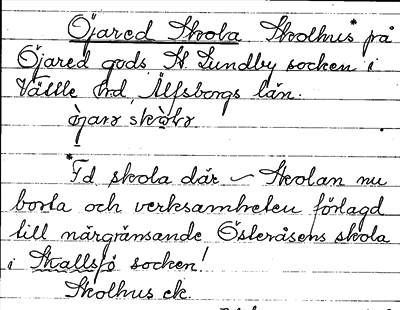 Öjared Skola Skolhus* på
Öjared gods, St. Lundby socken i
Vättle hd, Älfsborgs län.
*Fd skola där – Skolan nu
borta och verksamheten förlagd
till närgränsande Österåsens skola
i Skallsjö socken!
Skolhus ek.